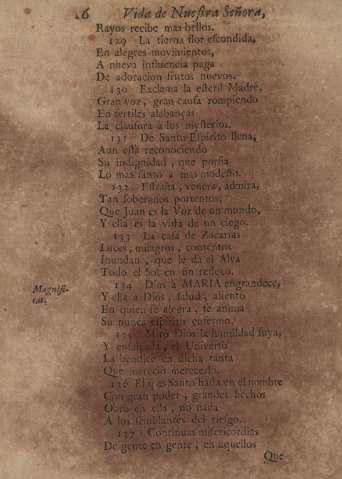 26 Vida de Nuestra Señora,
Rayos recibe mas bellos.
129 La tierna flor escondida,
En alegres movimientos,
A nueva influencia paga
De adoracion frutos nuevos.
130 Exclama la esteril Madre,
Gran voz, gran causa rompiendo
En fertiles alabanças
La clausura à los mysterios.
131 De Santo Espiritu llena,
Aun està reconociendo
Su indignidad, que porfia
Lo mas santo à mas modesto.
132 Estraña, venera, admira,
Tan soberanos portentos,
Que Juan es la Voz de un mundo,
Y ella es la vista de un ciego.
133 La casa de Zacarias
Luces, milagros, contentos
Inundan, que le dà el Alva
Todo el Sol en un reflexo.
134 Dios à MARIA engrandece,
Magnifi-
cat,
Y ella à Dios, salud, aliento
En quien se alegra, se anima
Su nunca espiritu enfermo.
135 Mirò Dios la humildad suya,
Y ensalçada, el Universo
La bendice en dicha tanta
Que mereciò merecerlo.
136 El q̃ es Santo hasta en el nombre
Con gran poder, grandes hechos
Obrò en ella, no nada
A los semblantes del riesgo.
137 Continuas misericordias
De gente en gente, en aquellos
Que